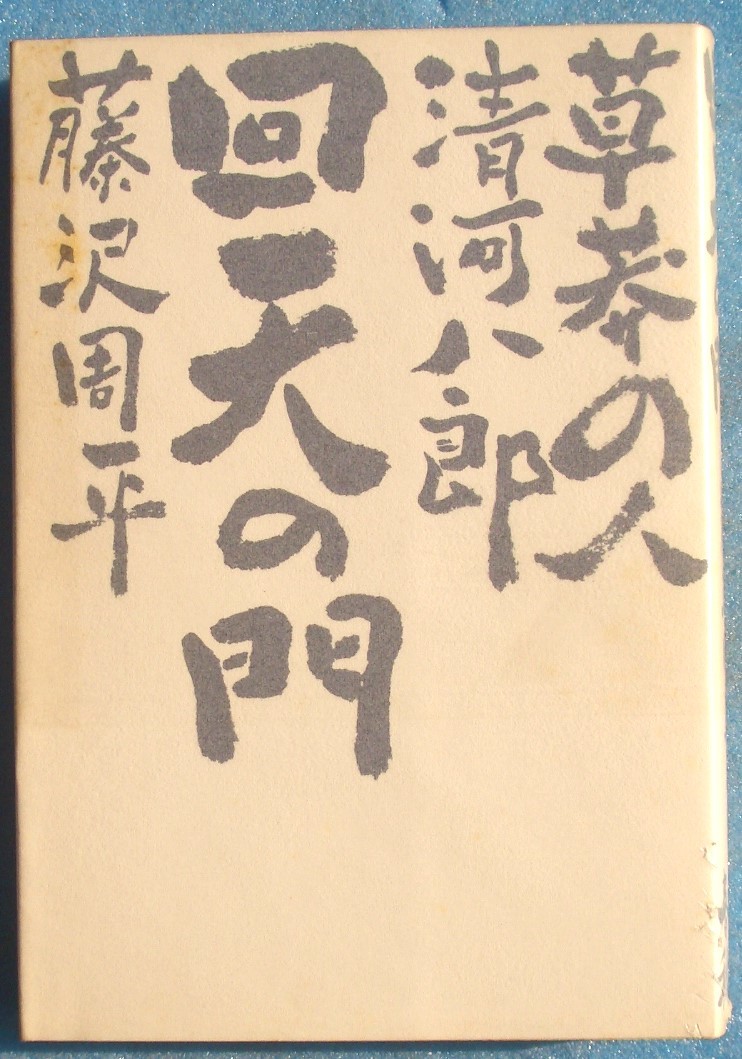 草莽の人
清河八郎
回天の門
藤沢周平